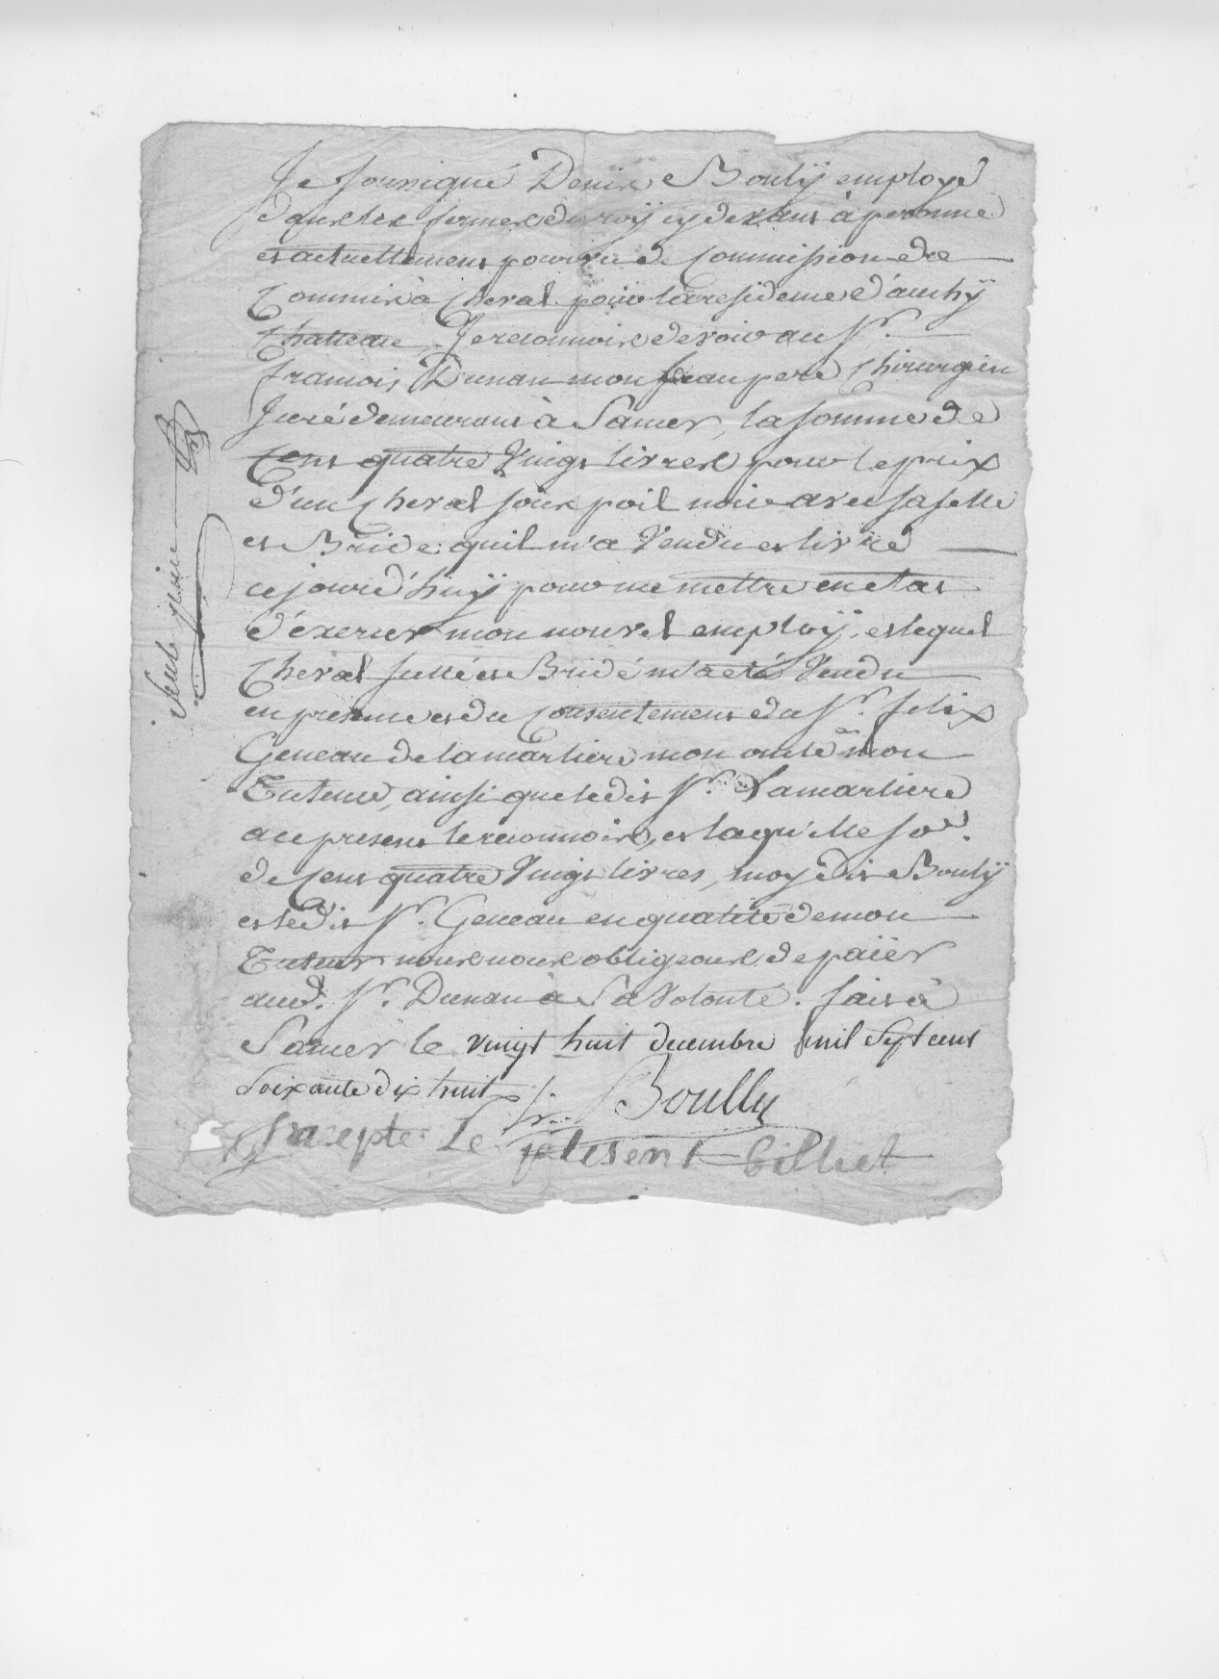 Je soussigné Denis Boulÿ employé
dans les fermes du roÿ cy devant à peronne
et actuellement pourvu de Commission de
Commis à Cheval pour la residence d'auchÿ
Chateau, Je reconnois devoir au Sr.
francois Dunan mon beaupere Chirurgien
Juré demeurant à Samer, la somme de
Cent quatre Vingt livres pour le prix
d'un Cheval sous poil noir avec sa selle
et Bride quil m'a Vendu et livré
cejourd'huÿ pour me mettre en etat
d'exercer mon nouvel employ, et lequel
Cheval sellé et Bridé m'a eté Vendu
en presence et du Consentement du Sr. felix
Geneau de lamarliere mon oncle et mon
Tuteur, ainsi que ledit Sr. Lamarliere
a ce present le reconnoit, et laquelle so.e
de Cent quatre Vingt livres, moy dit Boulÿ
et ledit Sr. Geneau en qualité de mon
Tuteur nous nous obligeons de païer
aud. Sr. Dunan à Sa Volonté. fait à
Samer le vingt huit decembre mil Sept cent
Soixante dix huit
Boully
J'acepte Le present billiet